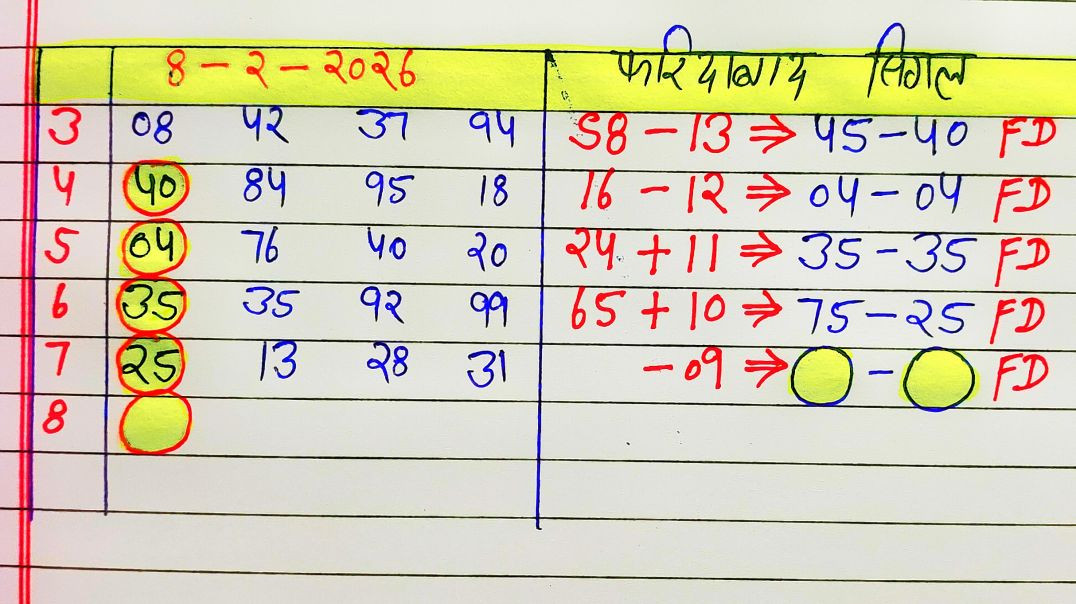 8 - २ - २०२६ फरिदाबाद सिंगल
3 08 ५२ ३7 9५ 58 - 13 ⇒ ५5 - ५0 FD
4 ५0 8५ 95 18 16 - 12 ⇒ 0५ - 0५ FD
5 0५ 76 ५0 २0 २५ + 11 ⇒ 35 - 35 FD
6 35 35 9२ 99 65 + 10 ⇒ 75 - २5 FD
7 २5 13 २8 31 - 09 ⇒ - FD
8